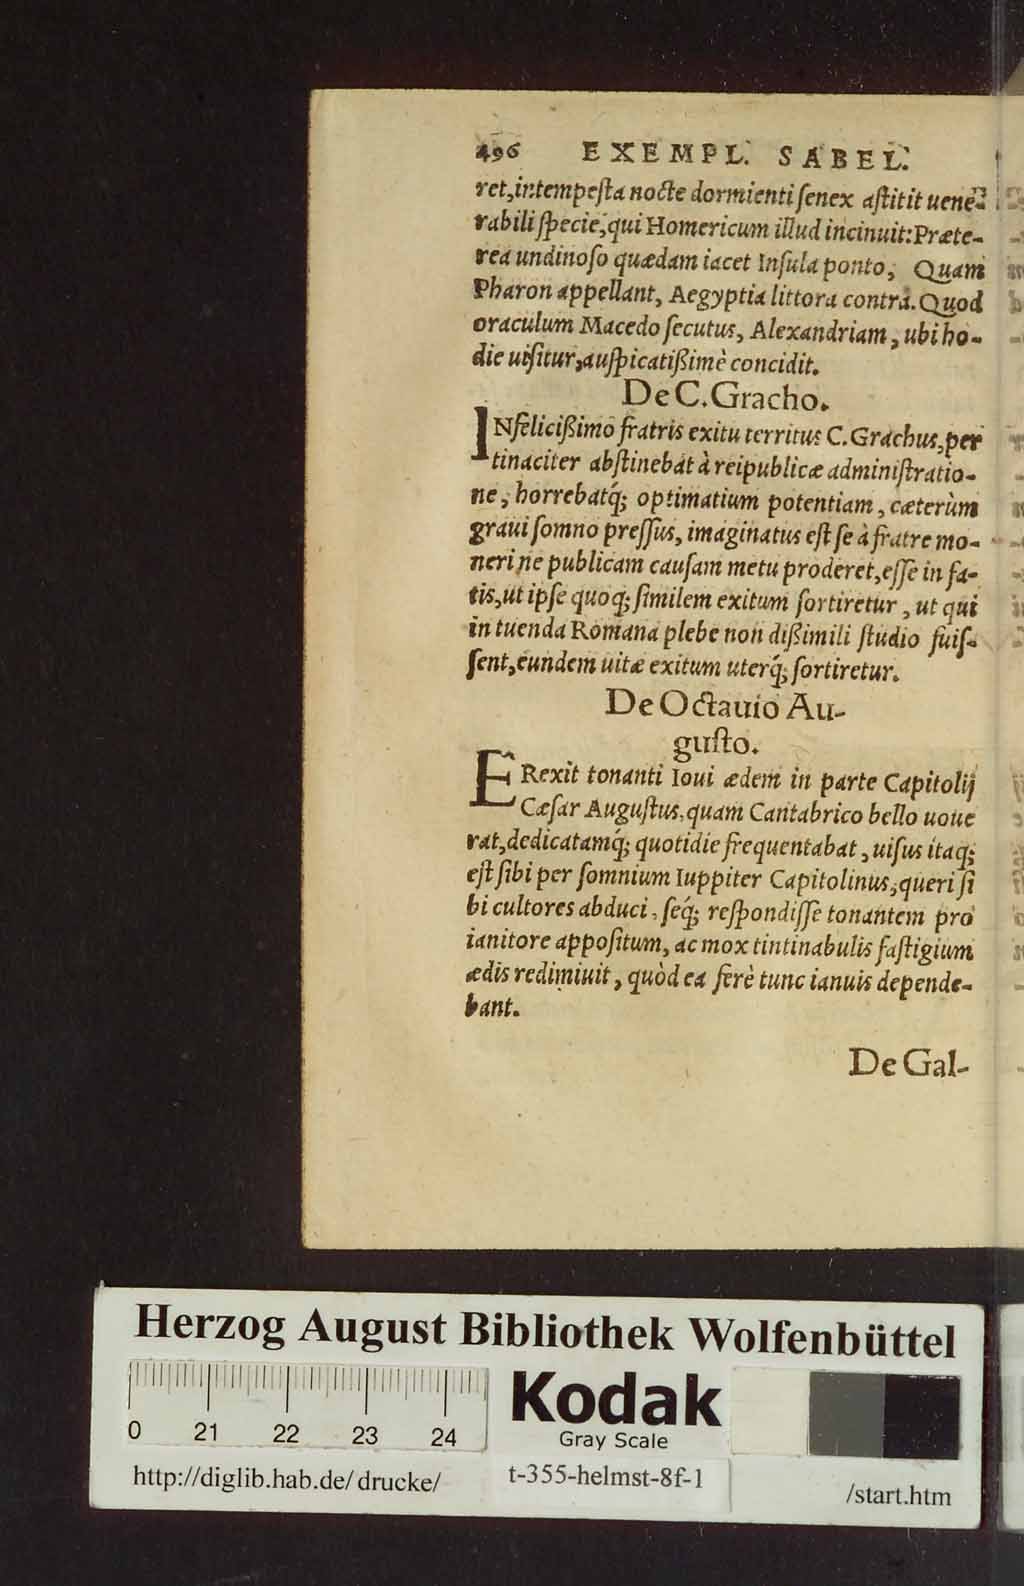 496 EXEMPL. SABEL.
ret, intempesta nocte dormienti senex astitit uene-
rabili specie, qui Homericum illud incinuit: Præte-
rea undinoso quædam iacet Insula ponto, Quam
Pharon appellant, Aegyptia littora contrà. Quod
oraculum Macedo secutus, Alexandriam, ubi ho-
die uisitur, auspicatißimè concidit.
De C. Gracho.
INfelicißimo fratris exitu territus C. Grachus, per
tinaciter abstinebat à reipublicæ administratio-
ne, horrebatq́; optimatium potentiam, cæterùm
graui somno pressus, imaginatus est se à fratre mo-
neri ne publicam causam metu proderet, esse in fa-
tis, ut ipse quoq; similem exitum sortiretur, ut qui
in tuenda Romana plebe non dißimili studio fuis-
sent, eundem uitæ exitum uterq́; sortiretur.
De Octauio Au-
gusto.
ERexit tonanti Ioui ædem in parte Capitolij
Cæsar Augustus, quam Cantabrico bello uoue
rat, dedicatamq́; quotidie frequentabat, uisus itaq;
est sibi per somnium Iuppiter Capitolinus, queri si
bi cultores abduci, seq́; respondisse tonantem pro
ianitore appositum, ac mox tintinabulis fastigium
ædis redimiuit, quòd ea ferè tunc ianuis depende-
bant.
De Gal-
Herzog August Bibliothek Wolfenbüttel
0 21 22 23 24
Kodak
Gray Scale
http://diglib.hab.de/drucke/
t-355-helmst-8f-1
/start.htm